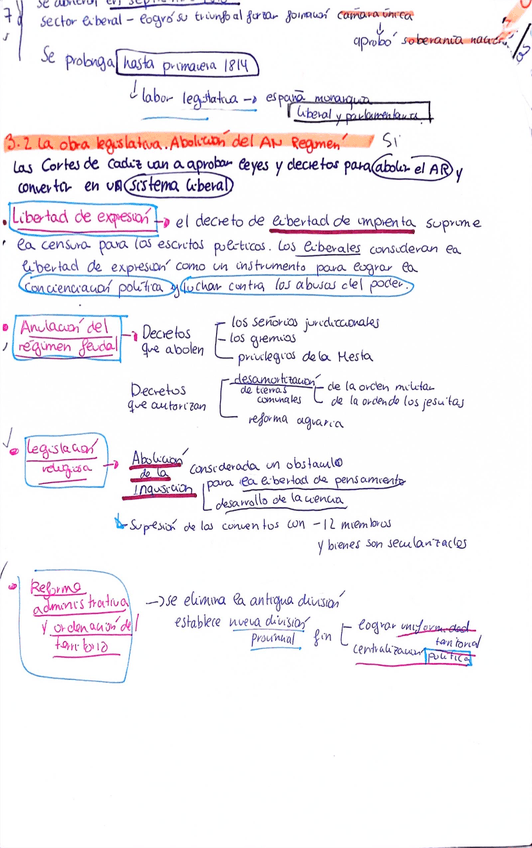 7
sector liberal - logró su triunfo al forzar formación cámara única
aprobó soberanía
Se prolonga hasta primavera 1814
labor legislativa → españa monarquía
liberal y parlamentaria
3.2 La obra legislativa. Abolición del AN Regimen Si
Las Cortes de Cadiz van a aprobar leyes y decretos para abolir el AR y
convertir en un sistema liberal
• Libertad de expresión → el decreto de libertad de imprenta suprime
la censura para los escritos politicos. Los liberales consideran la
libertad de expresión como un instrumento para lograr la
concienciación política y luchar contra los abusos del poder.
• Anulación del régimen feudal → Decretos que abolen
- los señorios jurídiccionales
- los gremios
- privilegios de la Mesta
Decretos que autorizan
desamortización de tierras comunales
- de la orden militar
- de la orden de los jesuitas
reforma agraria
• legislación religiosa → Abolición de la Inquisición
considerada un obstaculo
para la libertad de pensamiento
desarrollo de la ciencia
Supresión de los conventos con -12 miembros
y bienes son secularizados
• Reforma administrativa y ordenación del territorio
→ se elimina la antigua división
establece nueva división provincial fin
lograr uniformidad territorial
centralización política